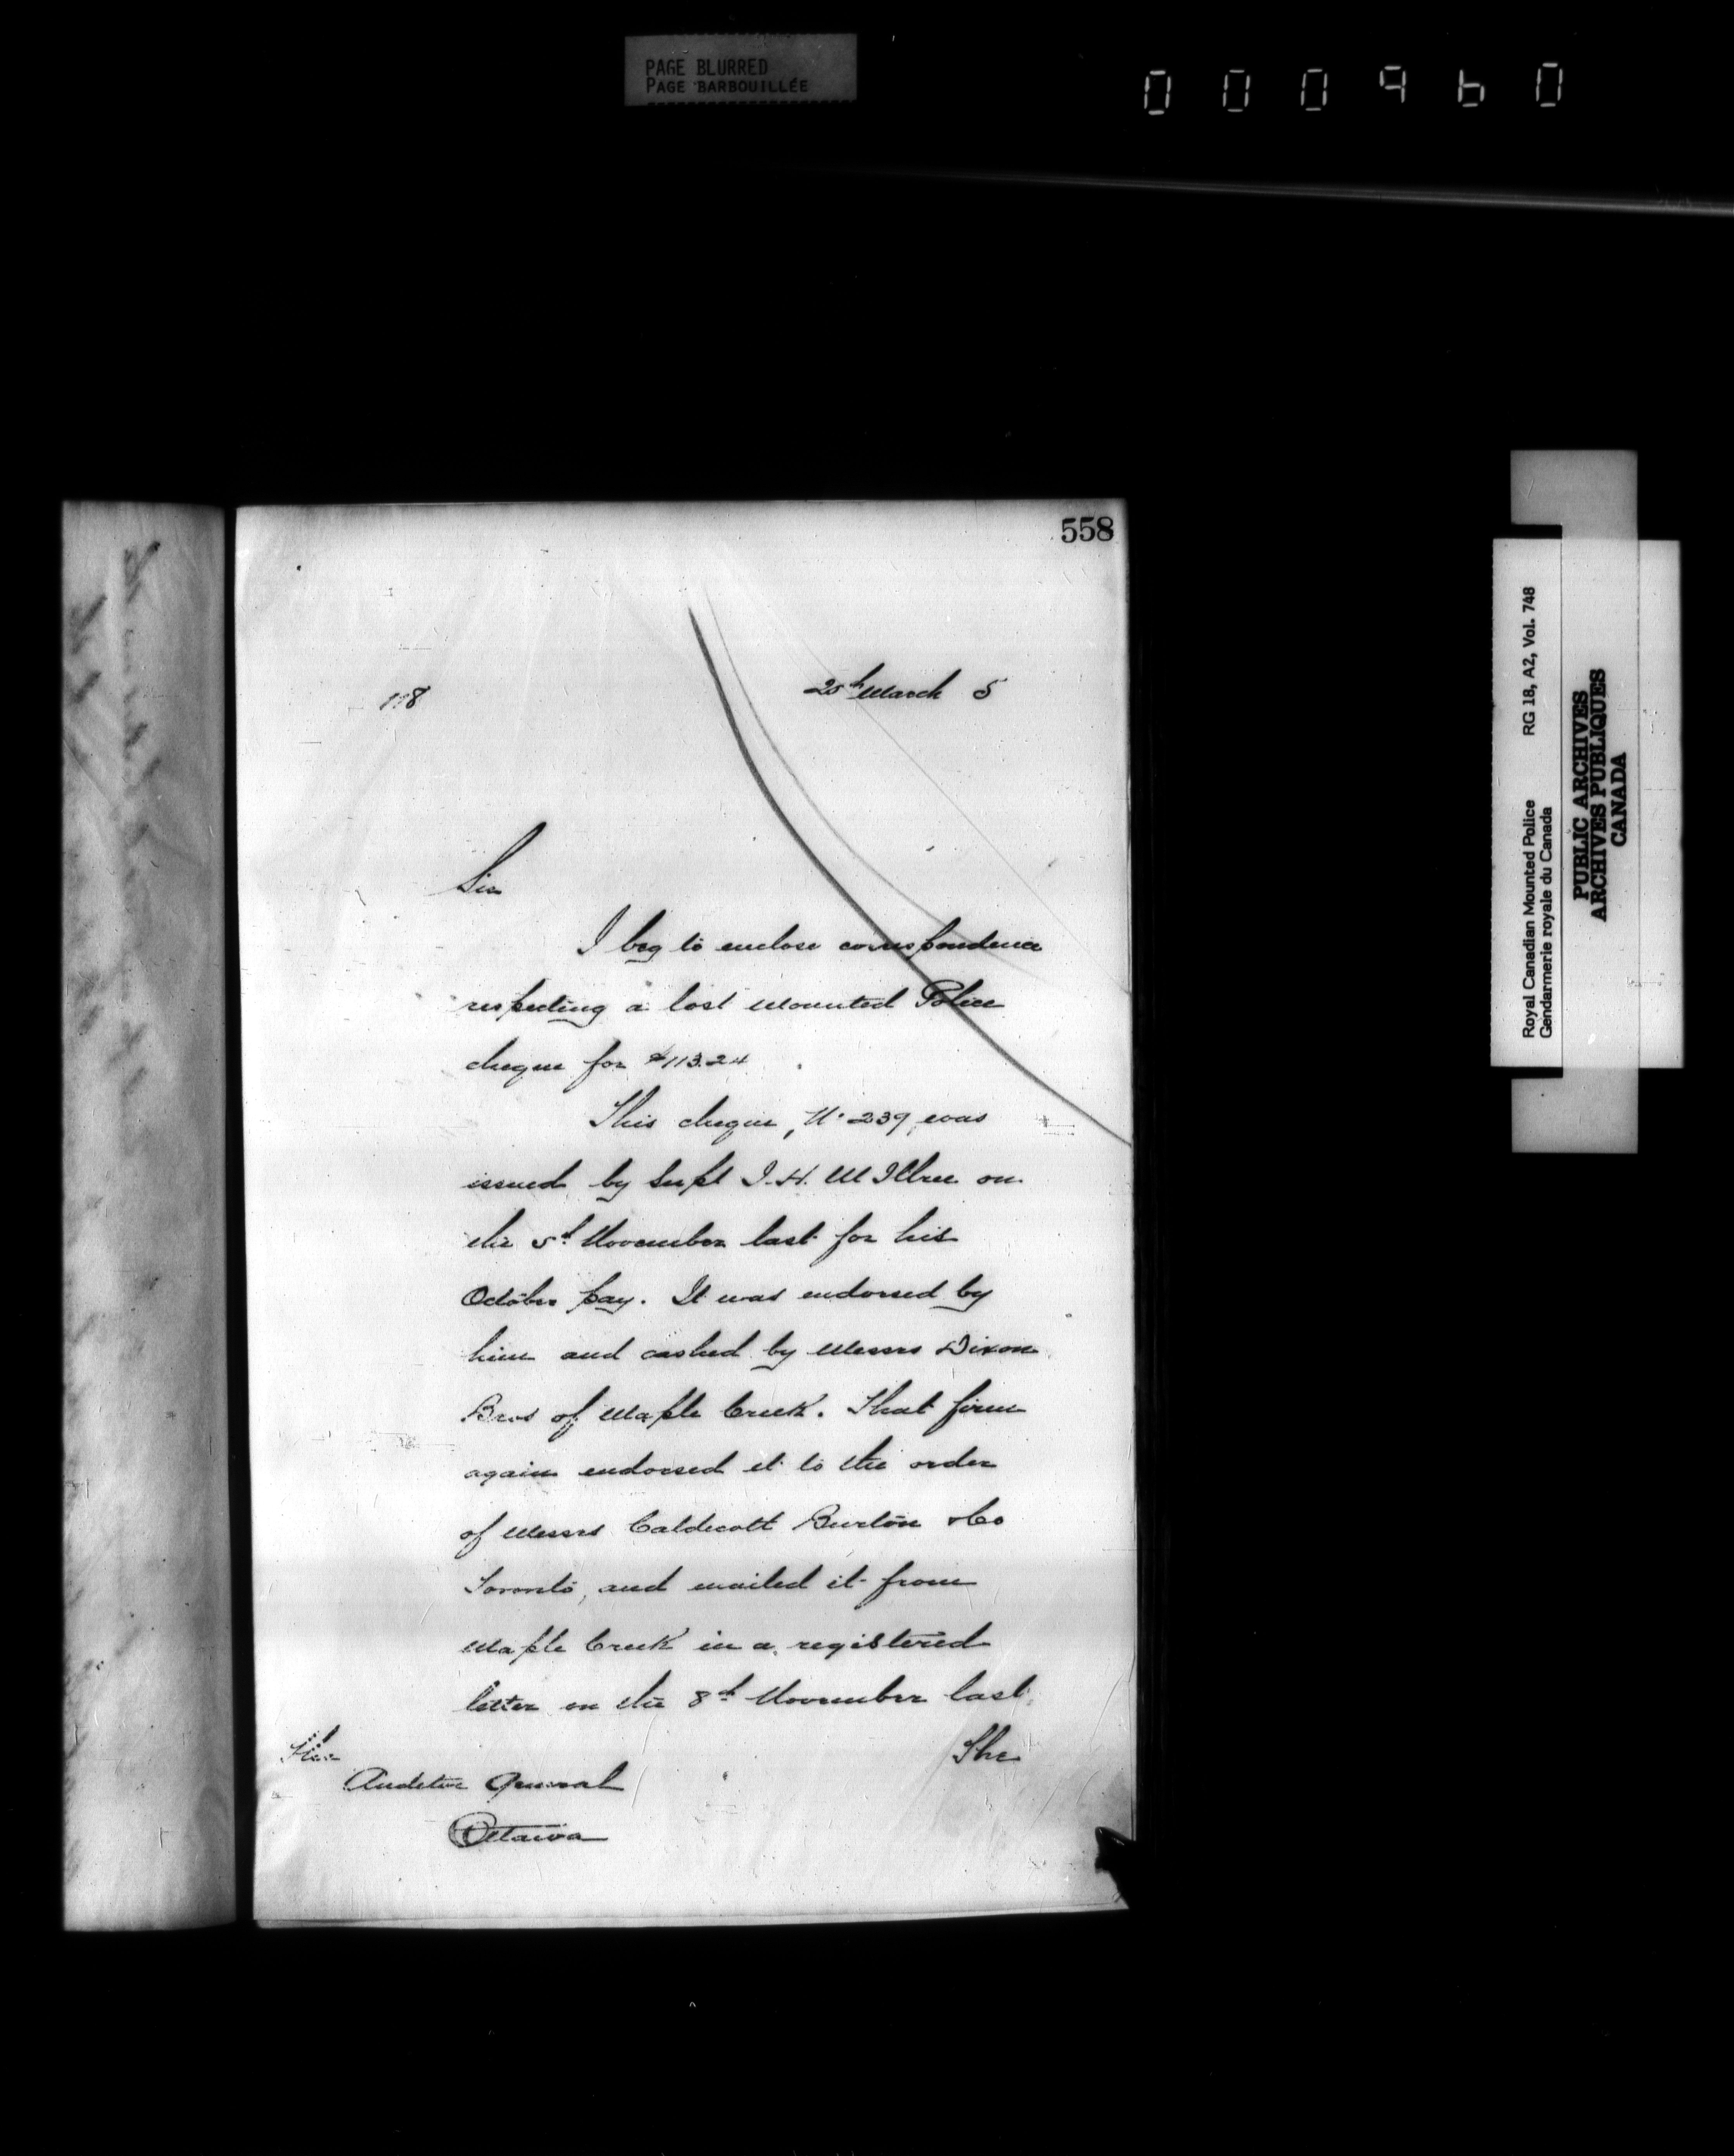 PAGE BLURRED
PAGE BARBOUILLÉE
000960
558
118
25th March 5
Sir
I beg to enclose correspondence
respecting a lost Mounted Police
cheque for $113.24
This cheque, No 239, was
issued by Supt J. H. McIllree on
the 5th November last for his
October pay. It was endorsed by
him and cashed by Messrs Dixon
Bros of Maple Creek. That firm
again endorsed it to the order
of Messrs Caldecott Burton & Co
Toronto, and mailed it from
Maple Creek in a registered
letter on the 8th November last.
The
The
Auditor General
Ottawa
Royal Canadian Mounted Police RG 18, A2, Vol. 748
Gendarmerie royale du Canada
PUBLIC ARCHIVES
ARCHIVES PUBLIQUES
CANADA